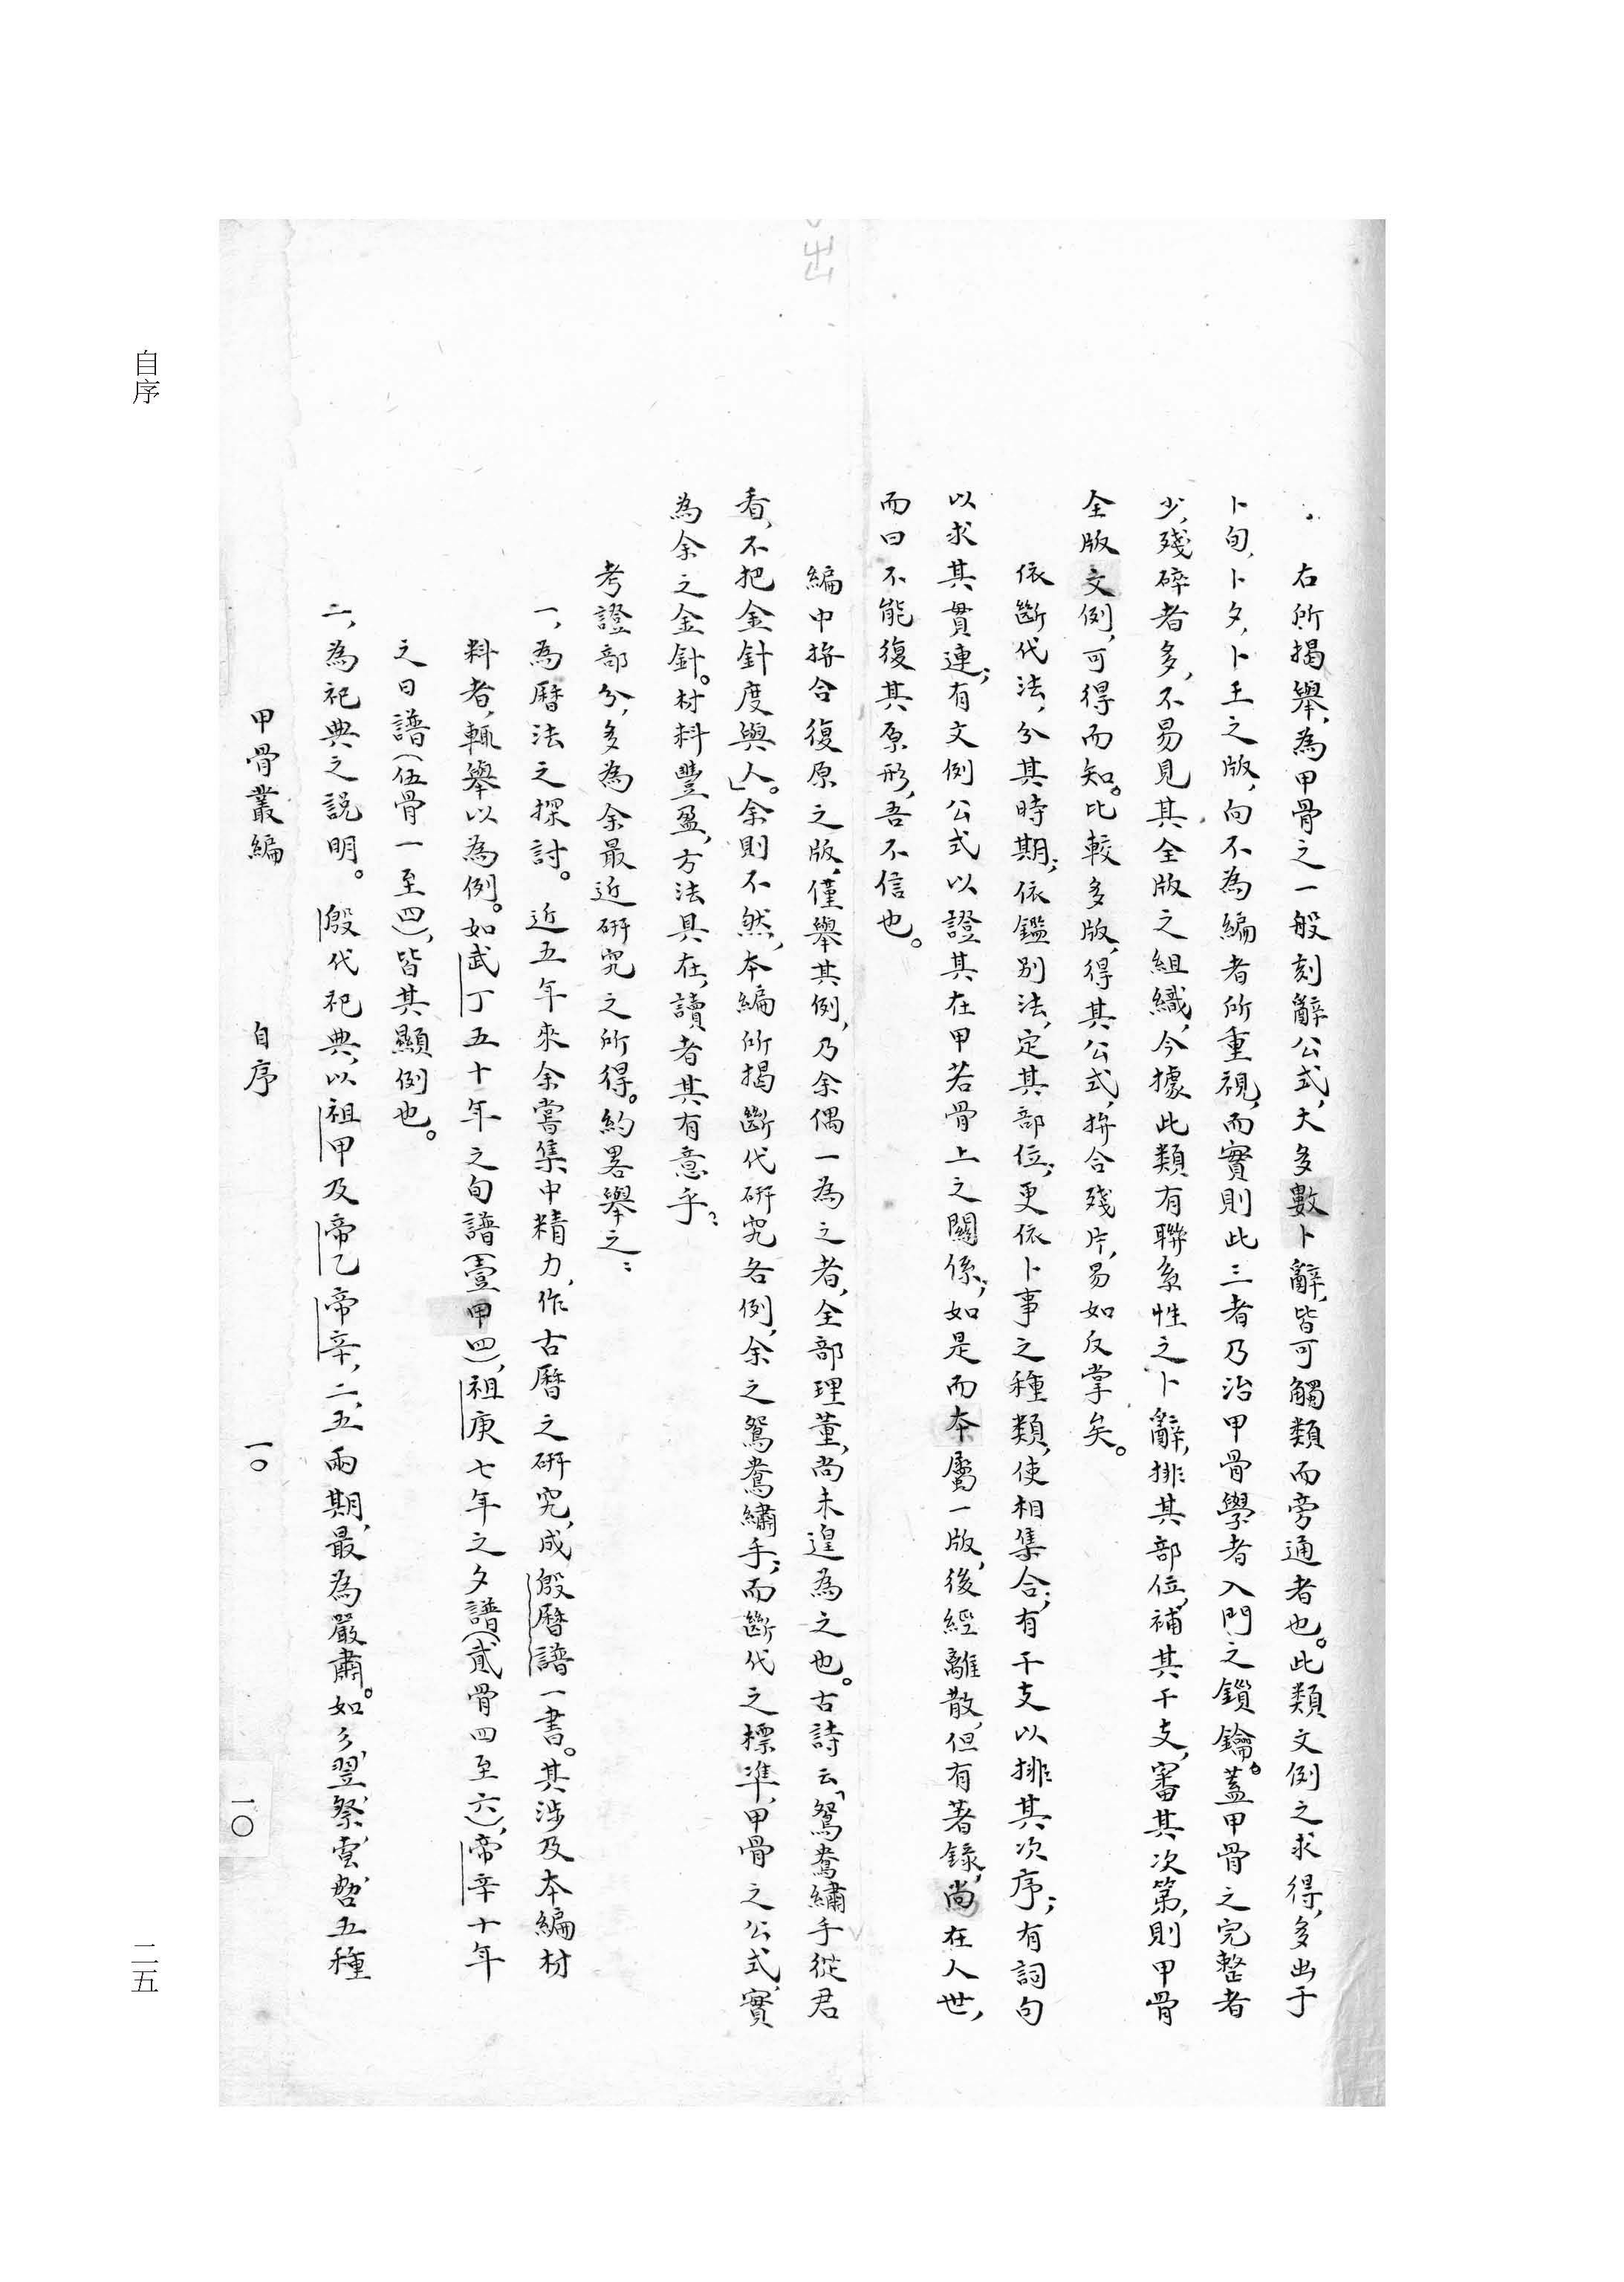 右所揭舉，為甲骨之一般刻辭公式，大多數卜辭，皆可觸類而旁通者也。此類文例之求得，多出于
卜旬，卜夕，卜王之版，向不為編者所重視，而實則此三者乃治甲骨學者入門之鎖鑰。蓋甲骨之完整者
少，殘碎者多，不易見其全版之組織，今據此類有聯系性之卜辭，排其部位，補其干支，審其次第，則甲骨
全版文例，可得而知。比較多版，得其公式，拚合殘片，易如反掌矣。
依斷代法，分其時期；依鑑別法，定其部位；更依卜事之種類，使相集合；有干支以排其次序；有詞句
以求其貫連；有文例公式以證其在甲若骨上之關係；如是而本屬一版，後經離散，但有著錄，尚在人世，
而曰不能復其原形，吾不信也。
編中拚合復原之版，僅舉其例，乃余偶一為之者，全部理董，尚未遑為之也。古詩云「鴛鴦繡手從君
看，不把金針度與人」。余則不然，本編所揭斷代研究各例，余之鴛鴦繡手；而斷代之標準，甲骨之公式，實
為余之金針。材料豐盈，方法具在，讀者其有意乎？
考證部分，多為余最近研究之所得。約畧舉之：
一，為曆法之探討。近五年來余嘗集中精力，作古曆之研究，成殷曆譜一書。其涉及本編材
料者，輒舉以為例。如武丁五十年之旬譜（壹甲四），祖庚七年之夕譜（貳骨四至六），帝辛十年
之日譜（伍骨一至四），皆其顯例也。
二，為祀典之說明。殷代祀典，以祖甲及帝乙帝辛，二，五兩期，最為嚴肅。如彡，翌，祭，𧯽，劦五種
甲骨叢編 自序 一〇
一〇
出
自序
二五